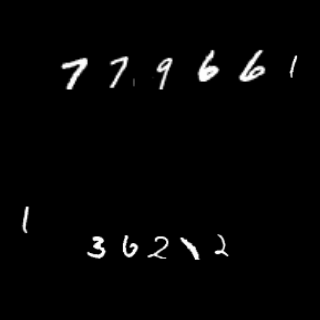 779661
1
36212